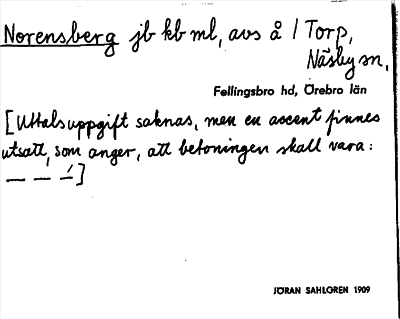 Norensberg jb kb ml, avs å 1 Torp,
Näsby sn,
Fellingsbro hd, Örebro län
[Uttalsuppgift saknas, men en accent finnes
utsatt, som anger, att betoningen skall vara:
— — —́]
JÖRAN SAHLGREN 1909